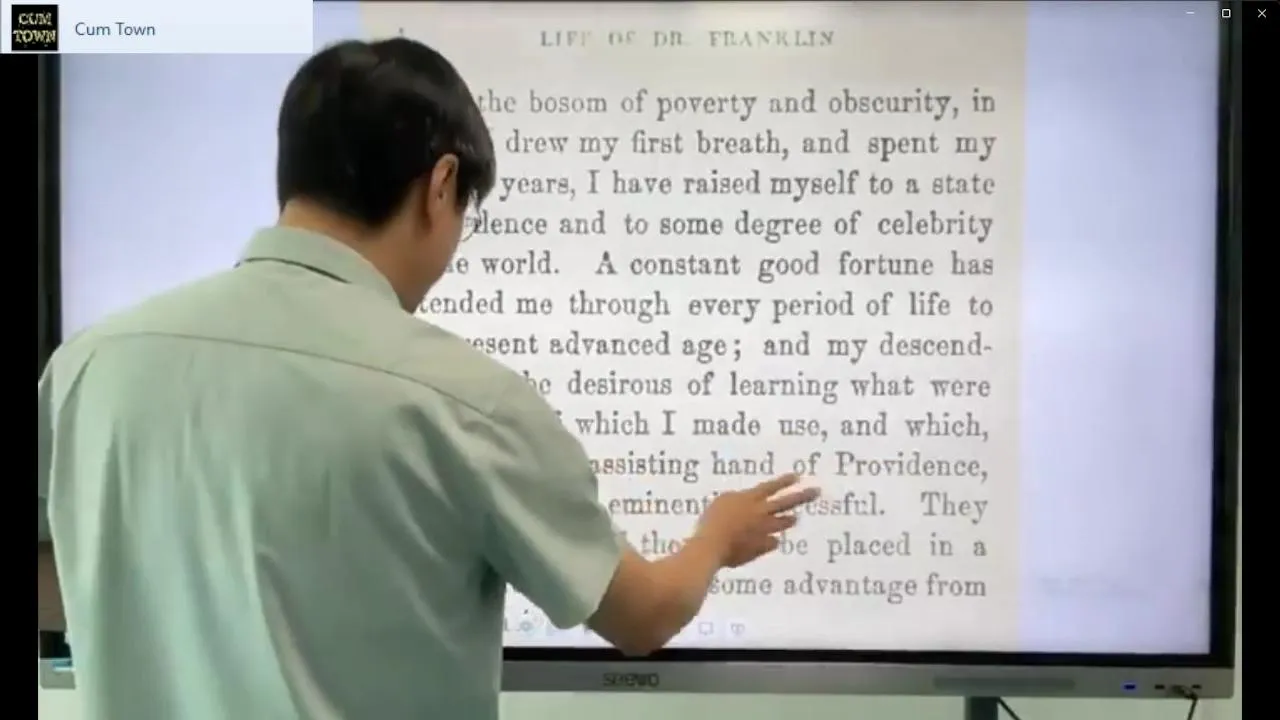 CUM TOWN
Cum Town
LIFE OF DR. FRANKLIN
the bosom of poverty and obscurity, in
drew my first breath, and spent my
years, I have raised myself to a state
and to some degree of celebrity
world. A constant good fortune has
me through every period of life to
advanced age; and my descend-
desirous of learning what were
which I made use, and which,
assisting hand of Providence,
They
be placed in a
some advantage from
seewo